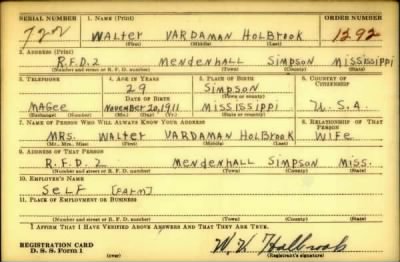 SERIAL NUMBER 1. NAME (Print) ORDER NUMBER
722 WALTER VARDAMAN HOLBROOK 1292
(First) (Middle) (Last)
2. ADDRESS (Print)
R.F.D. 2 MENDENHALL SIMPSON MISSISSIPPI
(Number and street or R. F. D. number) (Town) (County) (State)
3. TELEPHONE 4. AGE IN YEARS 5. PLACE OF BIRTH 6. COUNTRY OF CITIZENSHIP
29 SIMPSON
DATE OF BIRTH (Town or county)
MAGEE NOVEMBER 20, 1911 MISSISSIPPI U.S.A.
(Exchange) (Number) (Mo.) (Day) (Yr.) (State or country)
7. NAME OF PERSON WHO WILL ALWAYS KNOW YOUR ADDRESS 8. RELATIONSHIP OF THAT PERSON
MRS. WALTER VARDAMAN HOLBROOK WIFE
(Mr., Mrs., Miss) (First) (Middle) (Last)
9. ADDRESS OF THAT PERSON
R.F.D. 2 MENDENHALL SIMPSON MISS.
(Number and street or R. F. D. number) (Town) (County) (State)
10. EMPLOYER'S NAME
SELF (FARM)
11. PLACE OF EMPLOYMENT OR BUSINESS
(Number and street or R. F. D. number) (Town) (County) (State)
I AFFIRM THAT I HAVE VERIFIED ABOVE ANSWERS AND THAT THEY ARE TRUE.
REGISTRATION CARD
D. S. S. Form 1 (over) W. V. Holbrook
(Registrant's signature)